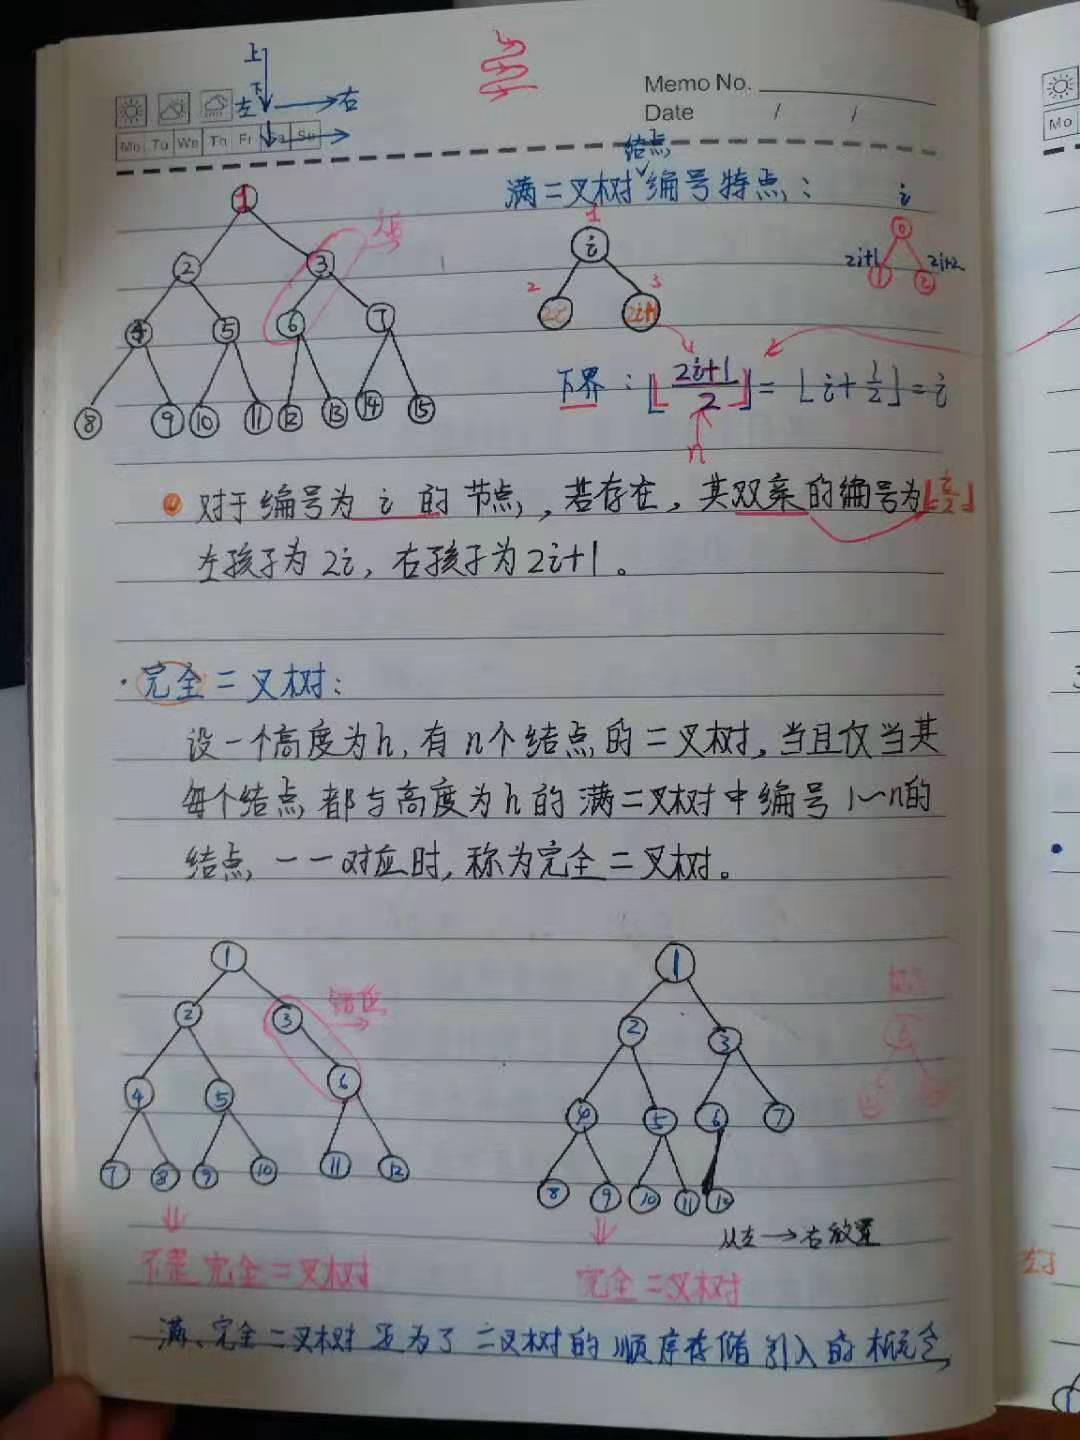 上
下
左 → 右
Memo No.
Mo Tu We Th Fr Sa Su
Date / /
结点
满二叉树编号特点:
1
2 3
4 5 6 7
8 9 10 11 12 13 14 15
1
i
2 3
2i 2i+1
i
0
2i+1 2i+2
1 2
下界: ⌊(2i+1)/2⌋ = ⌊i+1/2⌋ = i
n
对于编号为 i 的节点,若存在,其双亲的编号为⌊i/2⌋
左孩子为2i,右孩子为2i+1。
·完全二叉树:
设一个高度为h,有n个结点的二叉树,当且仅当其
每个结点都与高度为h的满二叉树中编号1~n的
结点一一对应时,称为完全二叉树。
1
2 3
4 5 6
7 8 9 10 11 12
错位
不是完全二叉树
1
2 3
4 5 6 7
8 9 10 11 12
从左→右放置
完全二叉树
满、完全二叉树是为了二叉树的顺序存储引入的概念
Mo